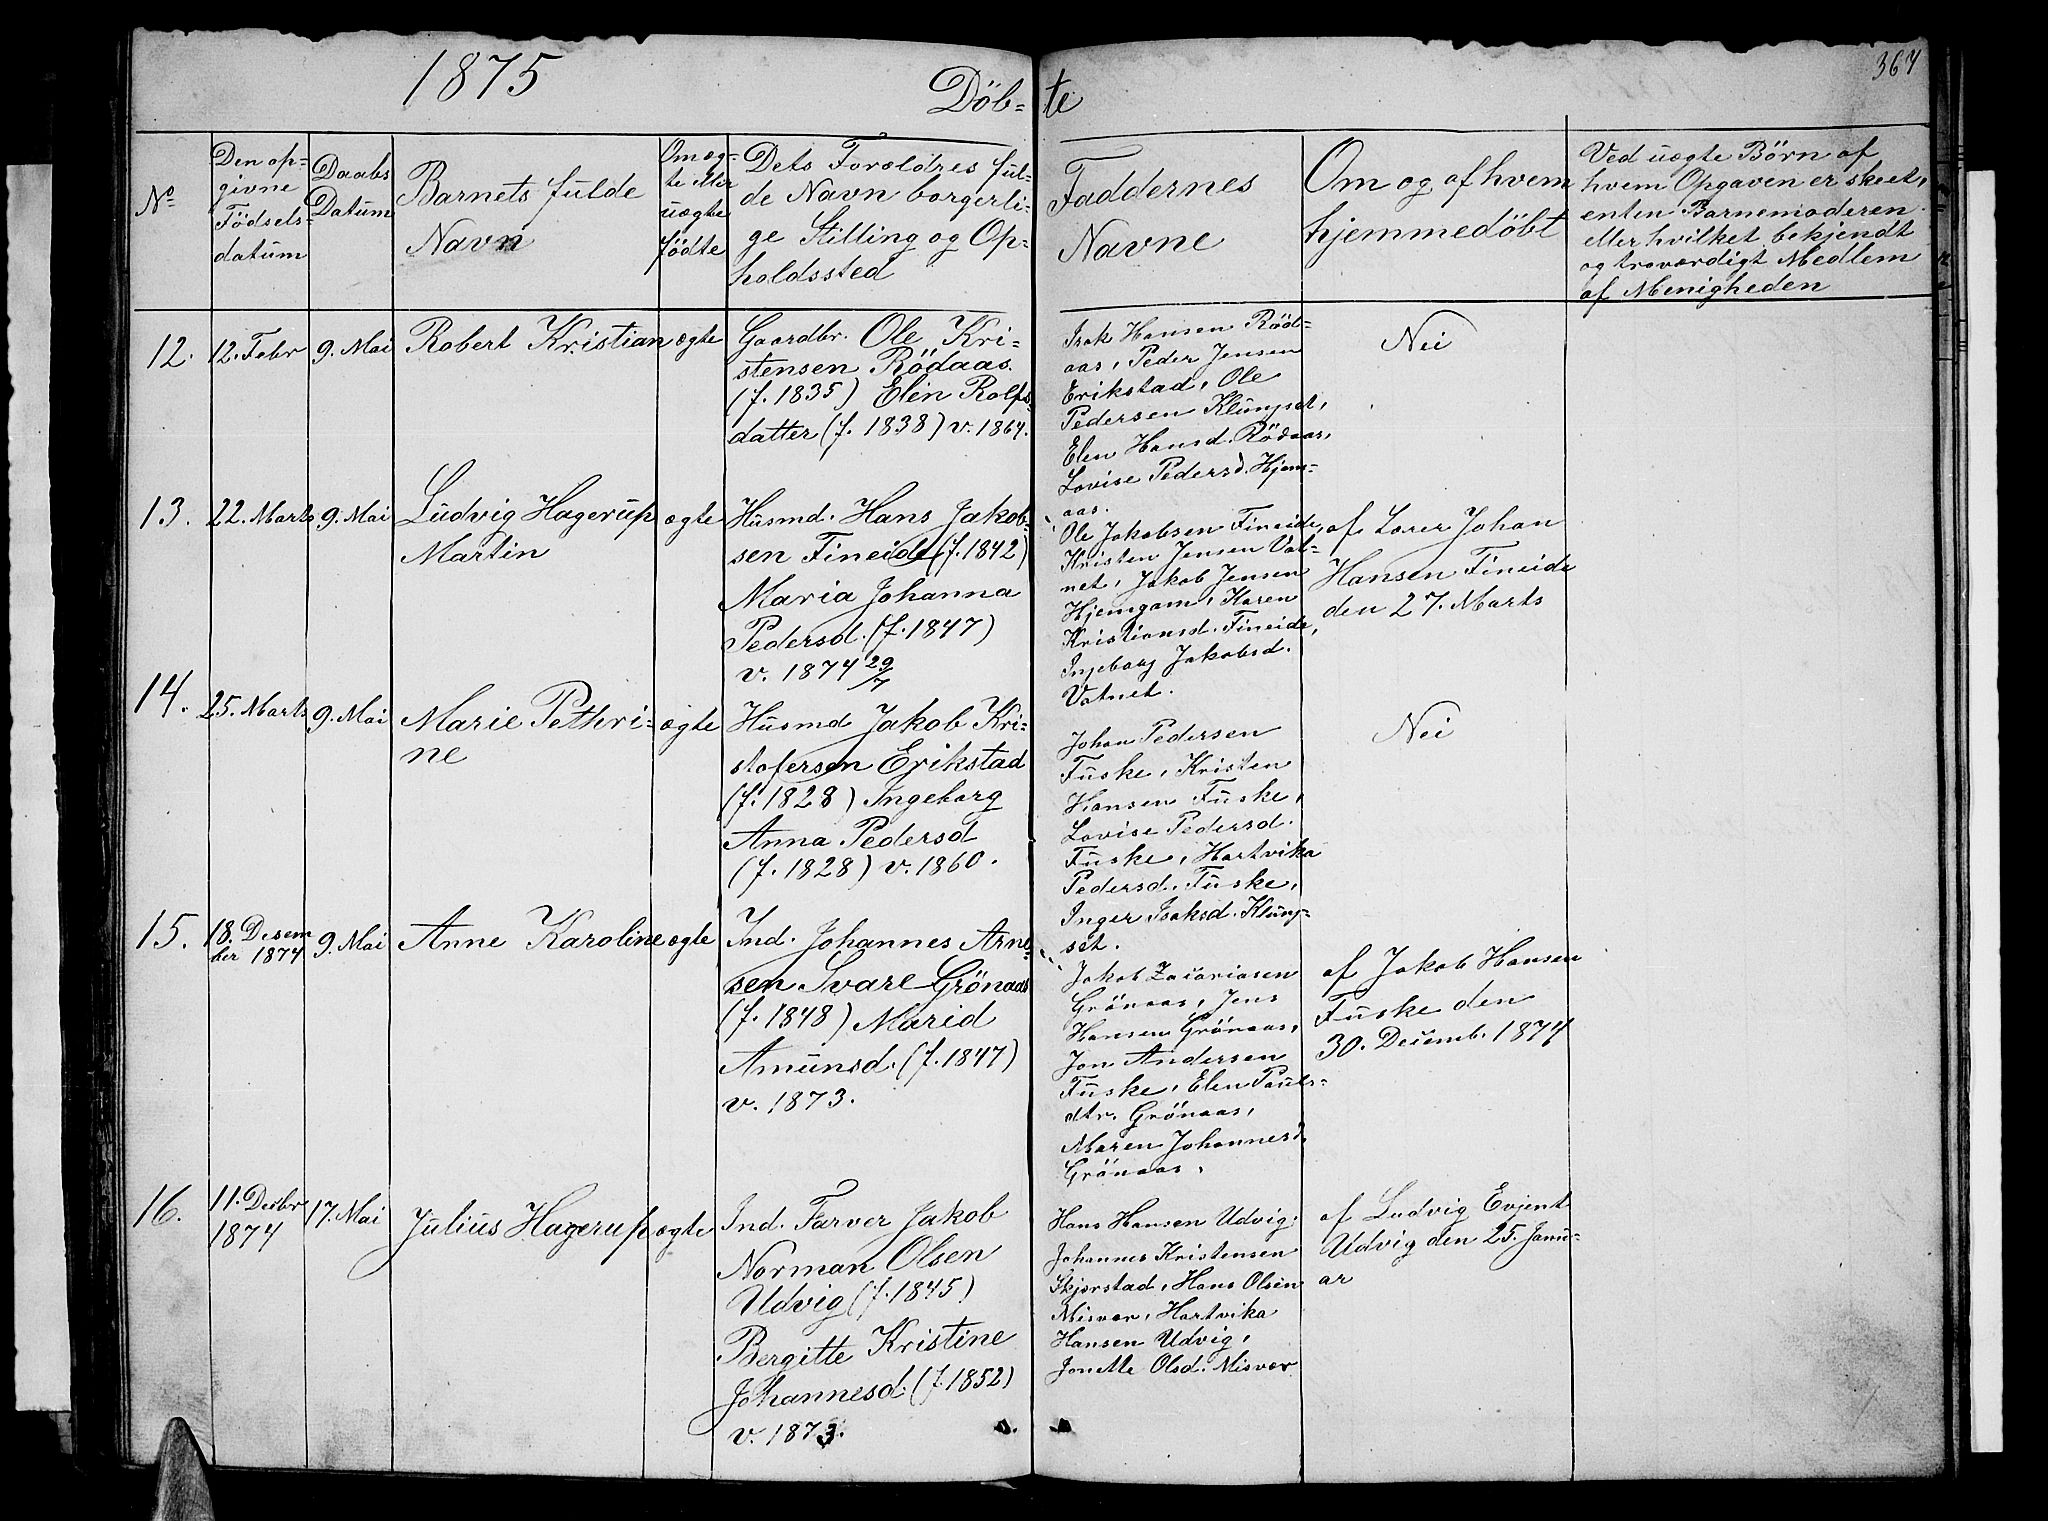 1875
Döb-
te
367
No
Den op-
givne
Födsels-
datum
Daabs
Datum
Barnets fulde
Navn
Om æg-
te eller
uægte
födte
Dets Forældres ful-
de Navn borgerli-
ge Stilling og Op-
holdssted
Faddernes
Navne
Om og af hvem
hjemmedöbt
Ved uægte Börn af
hvem Opgaven er skeet,
enten Barnemoderen
eller hvilket bekjendt
og troværdigt Medlem
af Menigheden
12.
12. Febr
9. Mai
Robert Kristian
ægte
Gaardbr. Ole Kri-
stensen Rödaas.
(f. 1835) Elen Rolfs-
datter (f. 1838) v. 1864.
Isak Hansen Röd-
aas, Peder Jensen
Erikstad, Ole
Pedersen Klungset,
Elen Hansd. Rödaas,
Lovise Pedersd. Hjem-
aas.
Nei
13.
22. Marts
9. Mai
Ludvig Hagerup
Martin
ægte
Husmd. Hans Jakob-
sen Fineide (f. 1842)
Maria Johanna
Pedersd. (f. 1847)
v. 1874 29/7
Ole Jakobsen Fineide,
Kristen Jensen Vat-
net, Jakob Jensen
Hjemgam, Karen
Kristiansd. Fineide,
Ingeborg Jakobsd.
Vatnet.
af Lærer Johan
Hansen Fineide
den 27. Marts
14.
25. Marts
9. Mai
Marie Pethri-
ne
ægte
Husmd Jakob Kri-
stofersen Erikstad
(f. 1828) Ingeborg
Anna Pedersd
(f. 1828) v. 1860.
Johan Pedersen
Fuske, Kristen
Hansen Fuske,
Lovise Pedersd.
Fuske, Hartvika
Pedersd. Fuske,
Inger Isaksd. Klung-
set.
Nei
15.
18. Desem
ber 1874
9. Mai
Anne Karoline
ægte
Ind. Johannes Arne-
sen Svare Grönaas
(f. 1848) Marid
Amunsd. (f. 1847)
v. 1873.
Jakob Zacariasen
Grönaas, Jens
Hansen Grönaas,
Jon Andersen
Fuske, Elen Pauls-
dtr. Grönaas,
Maren Johannesd.
Grönaas,
af Jakob Hansen
Fuske den
30. Decemb. 1874
16.
11. Decbr
1874
17. Mai
Julius Hagerup
ægte
Ind. Farver Jakob
Norman Olsen
Udvig (f. 1845)
Bergitte Kristine
Johannesd. (f. 1852)
v. 1873.
Hans Hansen Udvig,
Johannes Kristensen
Skjerstad, Hans Olsen
Misvær, Hartvika
Hansen Udvig,
Jonette Olsd. Misvær
af Ludvig Evjent
Udvig den 25. Janu-
ar